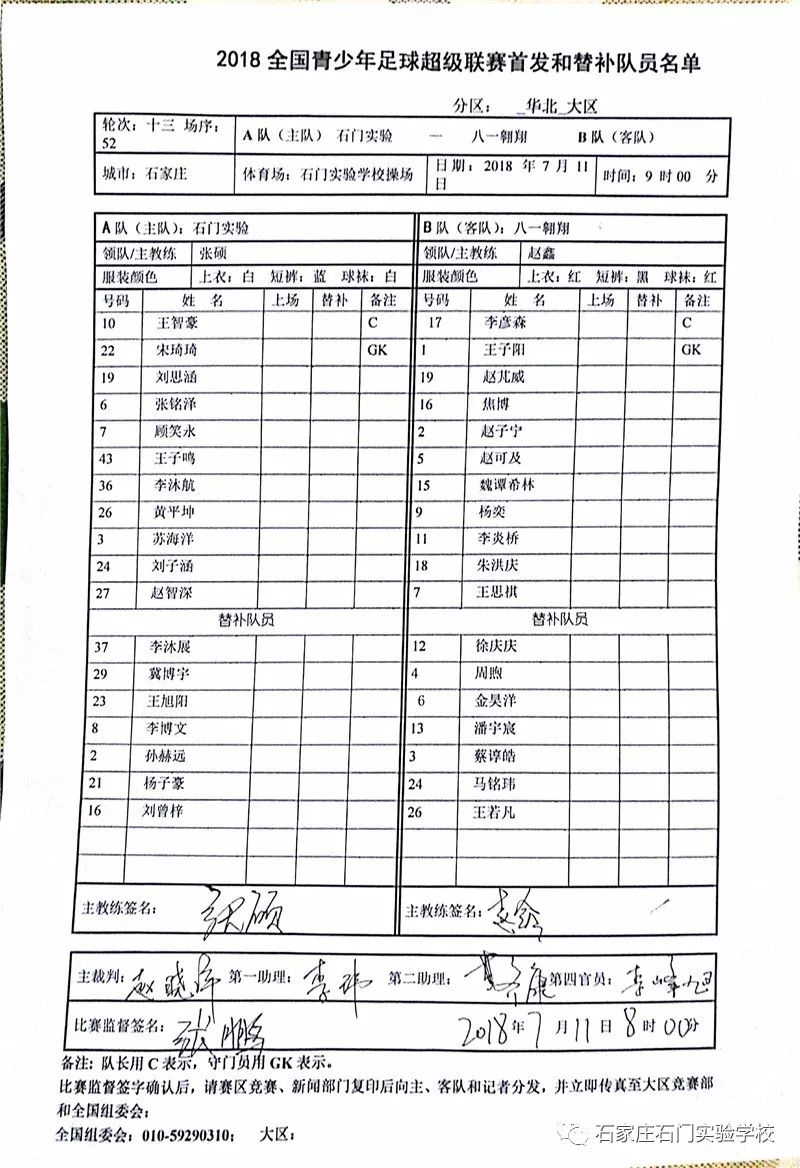 2018 全国青少年足球超级联赛首发和替补队员名单
分区： _华北_大区
轮次：十三 场序：52 A 队（主队） 石门实验 — 八一翱翔 B 队（客队）
城市：石家庄 体育场：石门实验学校操场 日期：2018 年 7 月 11 日 时间：9 时 00 分
A 队（主队）：石门实验 B 队（客队）：八一翱翔
领队/主教练 张硕 领队/主教练 赵鑫
服装颜色 上衣：白 短裤：蓝 球袜：白 服装颜色 上衣：红 短裤：黑 球袜：红
号码 姓 名 上场 替补 备注 号码 姓 名 上场 替补 备注
10 王智豪 C 17 李彦森 C
22 宋琦琦 GK 1 王子阳 GK
19 刘思涵 19 赵芃威
6 张铭泽 16 焦博
7 顾笑永 2 赵子宁
43 王子鸣 5 赵可及
36 李沐航 15 魏谭希林
26 黄平坤 9 杨奕
3 苏海洋 11 李炎桥
24 刘子涵 18 朱洪庆
27 赵智深 7 王思祺
替补队员 替补队员
37 李沐展 12 徐庆庆
29 冀博宇 4 周煦
23 王旭阳 6 金昊洋
8 李博文 13 潘宇宸
2 孙赫远 3 蔡谆皓
21 杨子豪 24 马铭玮
16 刘曾梓 26 王若凡
主教练签名： 张硕 主教练签名： 赵鑫
主裁判： 赵晓 第一助理： 李 第二助理： 第四官员： 李峰旭
比赛监督签名： 张鹏 2018 年 7 月 11 日 8 时 00 分
备注：队长用 C 表示，守门员用 GK 表示。
比赛监督签字确认后，请赛区竞赛、新闻部门复印后向主、客队和记者分发，并立即传真至大区竞赛部
和全国组委会；
全国组委会：010-59290310； 大区：
石家庄石门实验学校